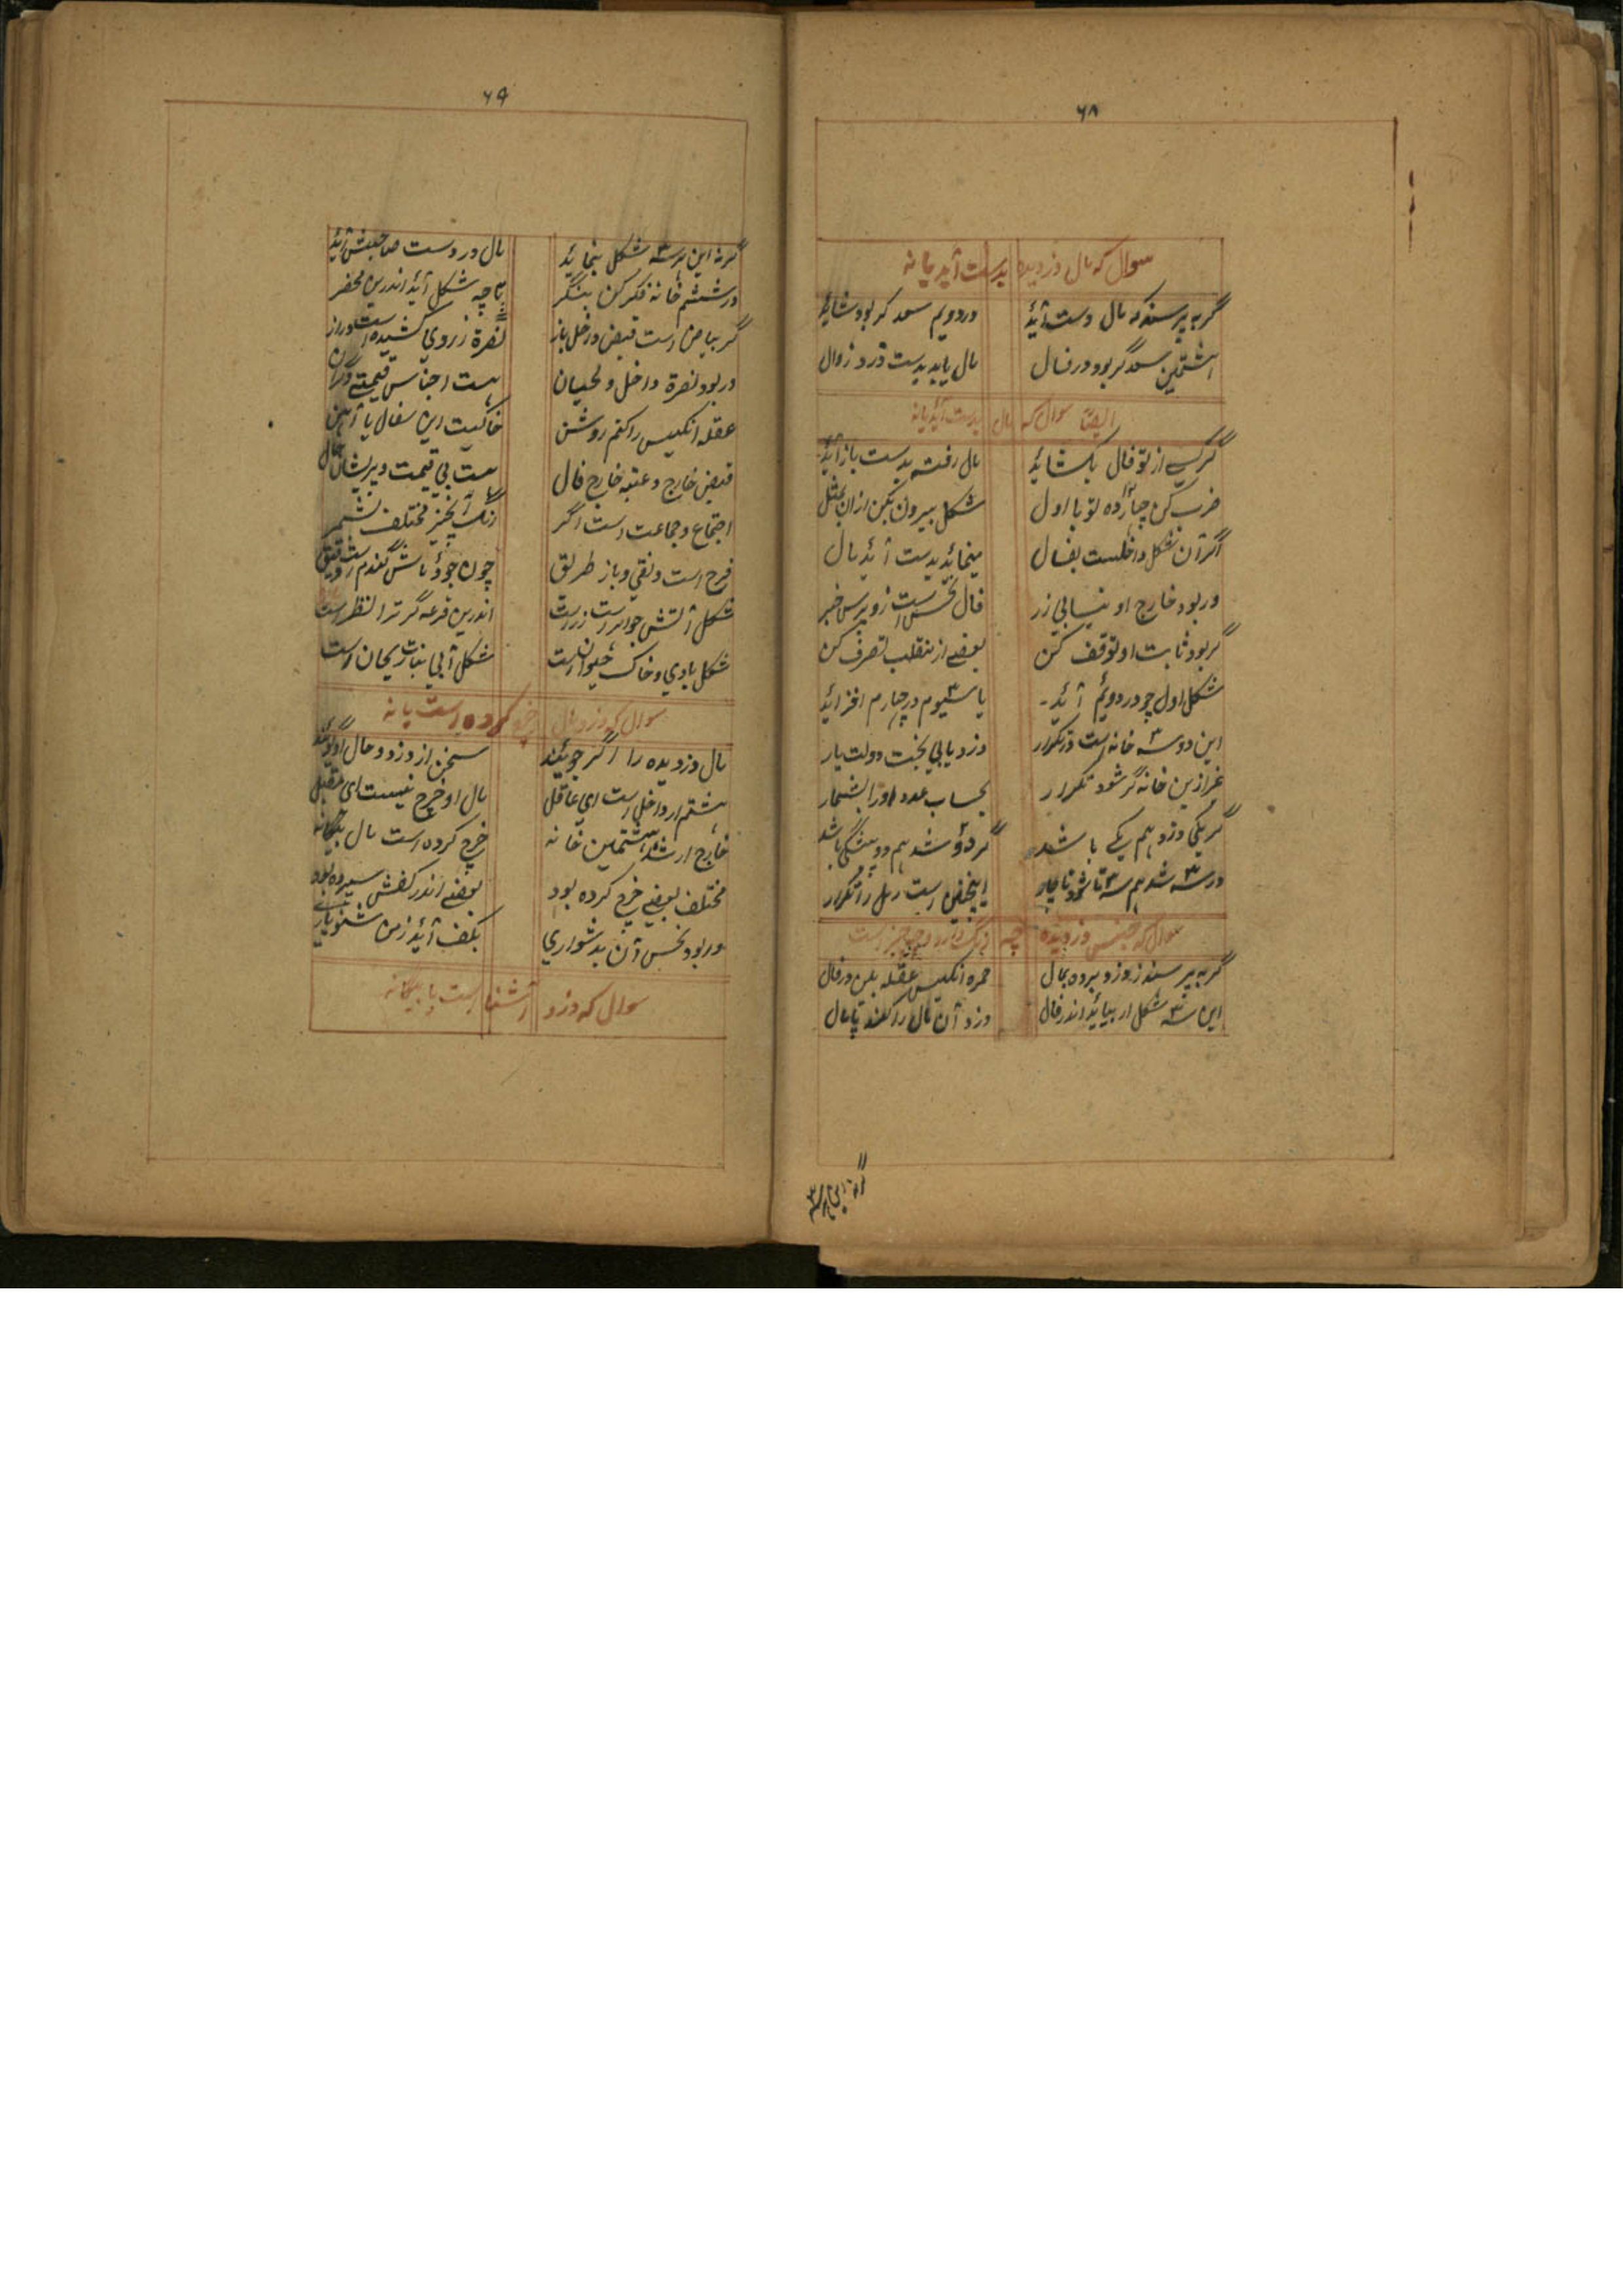 ۶۸
سوال که مال دزدیده بدست آید یا نه
گر به پرسند که مال دست آید در دویم سعد گر بود شاید
هشتمین سعد گر بود در فال مال یابد بدست دزد زوال
ایضا سوال که مال بدست آید یا نه
گر کسے از تو فال بکشاید مال رفته بدست باز آید
ضرب کن چهارده تو با اول شکل بیرون بکن ازان بمثل
اگر آن شکل داخلست بفال مینماید بدست آید مال
ور بود خارج او نیابی زر فال نحس است زو بپرس خبر
گر بود ثابت او توقف کن بعضے از منقلب تصرف کن
شکل اول چو در دویم آید یا سیوم در چهارم افزاید
این دو سه خانه است در تکرار دزد یابی بخت دولت یار
غیر ازین خانه گر شود تکرار بحساب عدد او را بشمار
گر یکی دزد هم یکے باشد گر دو شد هم دو بیشکی باشد
ور سه شد هم سه تا شود ناچار اینچنین است رمل را تکرار
سوال که جنس دزدیده چه رنگ دارد و چه چیز است
گر به پرسند ز دزد برده مال حمره انکیس عقله بین در فال
این سه شکل ار بیاید اندر فال دزد آن مال را کند پامال
گر نه این هر سه
۶۹
گر نه این هر سه شکل بنماید مال در دست صاحبش آید
در ششم خانه فکر کن بنگر تا چه شکل آید اندرین محضر
گر بیاض است قبض داخل باز نصرة ز روی کشیده است دراز
ور بود نصرة داخل و لحیان هست اجناس قیمتے و گران
عقله انکیس را کنم روشن خاکیست این سفال یا آهن
قبض خارج و عتبه خارج فال هست بی قیمت و پریشان حال
اجتماع و جماعت است اگر رنگ آنچیز مختلف بشمر
فرح است و نقی و باز طریق چون جو و ماش گندم است دقیق
شکل آتش جواهر است زر است اندرین قرعه گر ترا نظر است
شکل بادی و خاک حیوان است شکل آبی نبات ریحان است
سوال که دزد مال خرچ کرده است یا نه
مال دزدیده را اگر جویند سخن از دزد و حال او گویند
هشتم ار داخل است ای عاقل مال او خرچ نیست ای مقبل
خارج ار شد هشتمین خانه خرچ کرده است مال بیگانه
مختلف بعضے خرچ کرده بود بعضے اندر کفش سپرده بود
ور بود نحس آن بدشواری بکف آید ز من شنو یاری
سوال که دزد آشنا است یا بیگانه